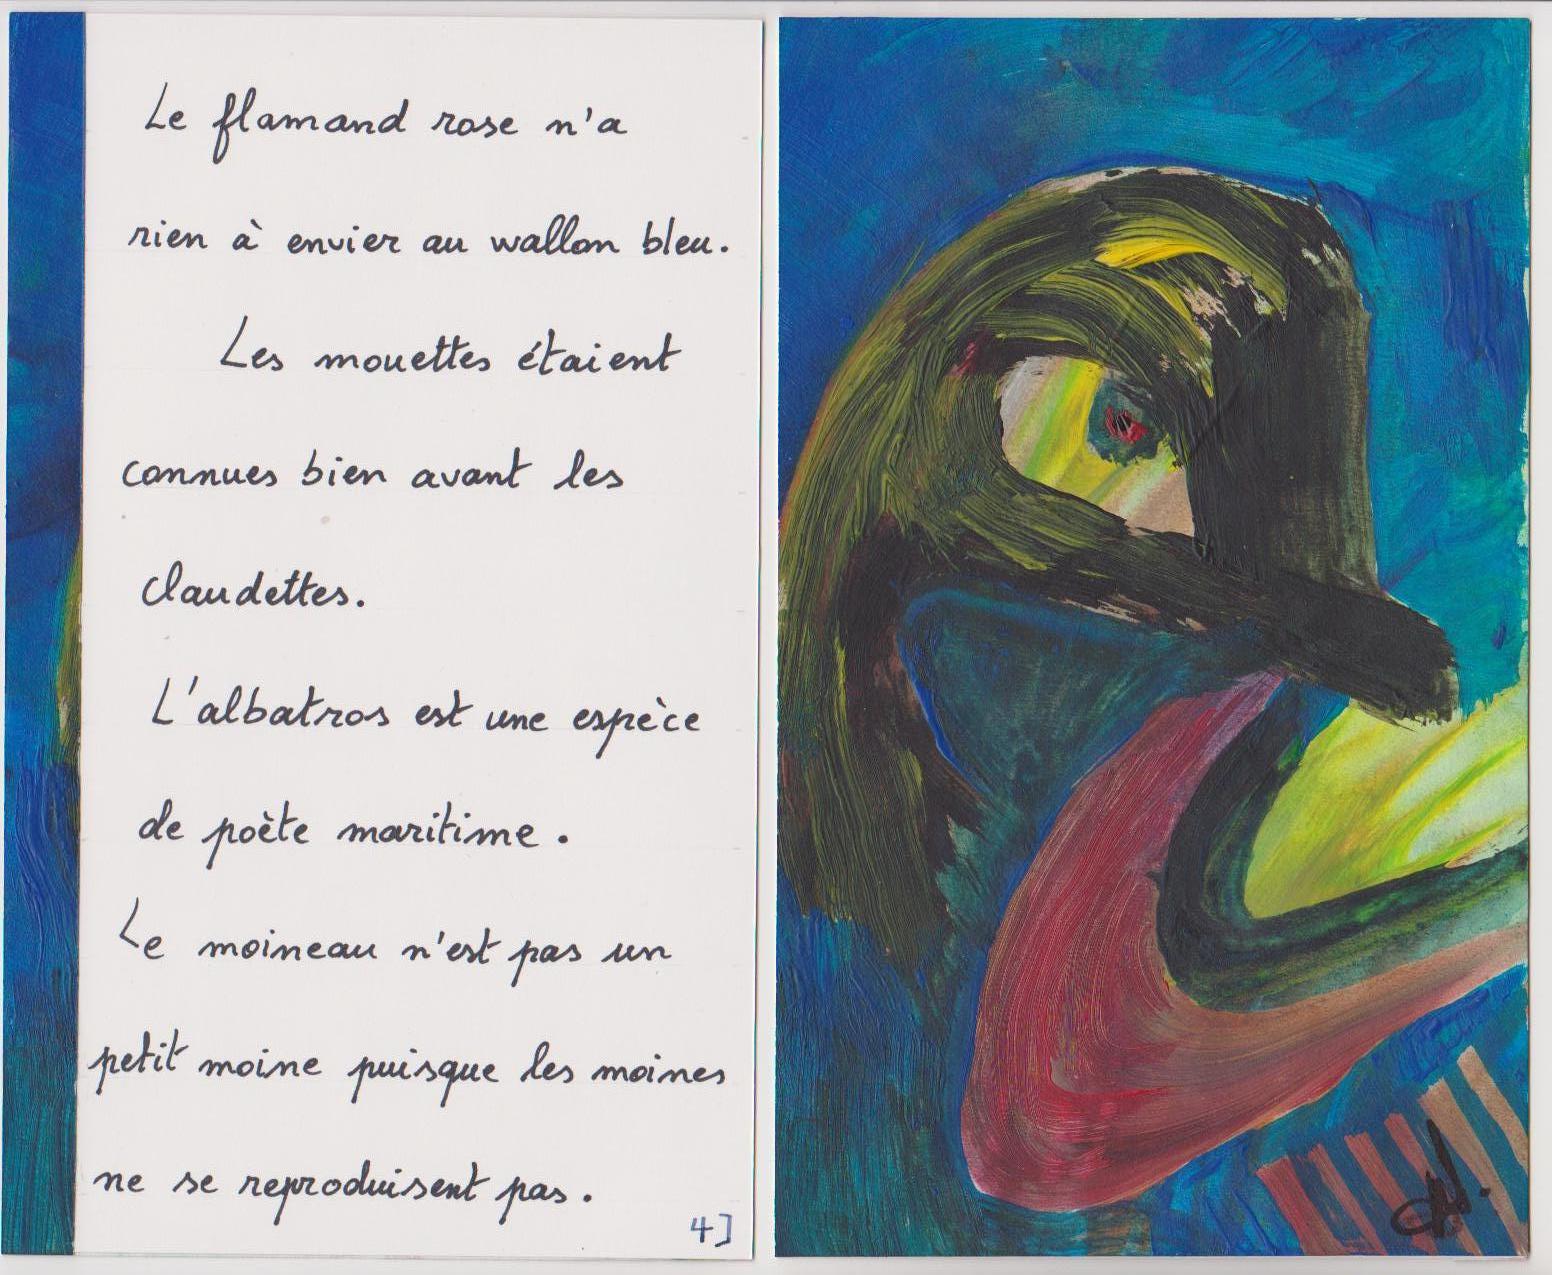 Le flamand rose n'a
rien à envier au wallon bleu.
Les mouettes étaient
connues bien avant les
claudettes.
L'albatros est une espèce
de poète maritime.
Le moineau n'est pas un
petit moine puisque les moines
ne se reproduisent pas.
4]